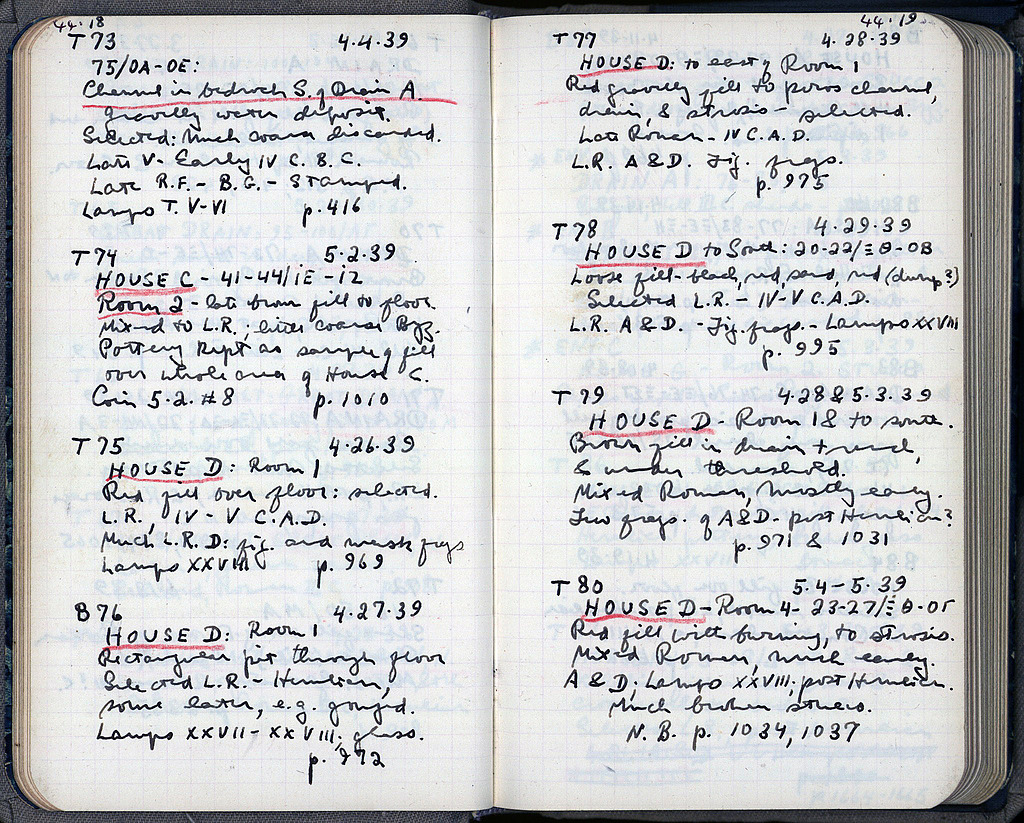 44.18
T 73 4.4.39
75/OA-OE:
Channel in bedrock S. of Drain A
gravelly water deposit.
Selected: Much coarse discarded.
Late V - Early IV C. B.C.
Late R.F. - B.G. - Stamped.
Lamps T. V-VI p. 416
T 74 5.2.39
HOUSE C - 41-44/ΙΕ - ΙΖ
Room 2 - late brown fill to floor.
Mixed to L.R.; little coarse Byz.
Pottery kept as sample of fill
over whole area of House C.
Coin 5.2. #8 p. 1010
T 75 4.26.39
HOUSE D: Room 1
Red fill over floor: selected.
L.R., IV - V C. A.D.
Much L.R. D: fig. and mask frags
Lamps XXVIII p. 969
B 76 4.27.39
HOUSE D: Room 1
Rectangular pit through floor
Selected L.R. - Herulian,
some later, e.g. gouged.
Lamps XXVII - XXVIII; glass.
p. 972
44.19
T 77 4.28.39
HOUSE D: to east of Room 1
Red gravelly fill to poros channel,
drain, & strosis - selected.
Late Roman - IV C. A.D.
L.R. A & D. Fig. frags.
p. 975
T 78 4.29.39
HOUSE D to South: 20-22/Ξ Θ-ΟΒ
Loose fill - black, red, sand, red (dump?)
Selected L.R. - IV-V C. A.D.
L.R. A & D. - Fig. frags. - Lamps XXVIII
p. 995
T 79 4.28 & 5.3.39
HOUSE D - Room 1 & to south.
Brown fill in drain +
& under threshold.
Mixed Roman, mostly early.
Few frags. of A & D - post Herulian?
p. 971 & 1031
T 80 5.4-5.39
HOUSE D - Room 4 - 23-27/Ξ Θ-ΟΓ
Red fill with burning, to strosis.
Mixed Roman, much early.
A & D; Lamps XXVIII; post Herulian.
Much broken stucco.
N.B. p. 1034, 1037